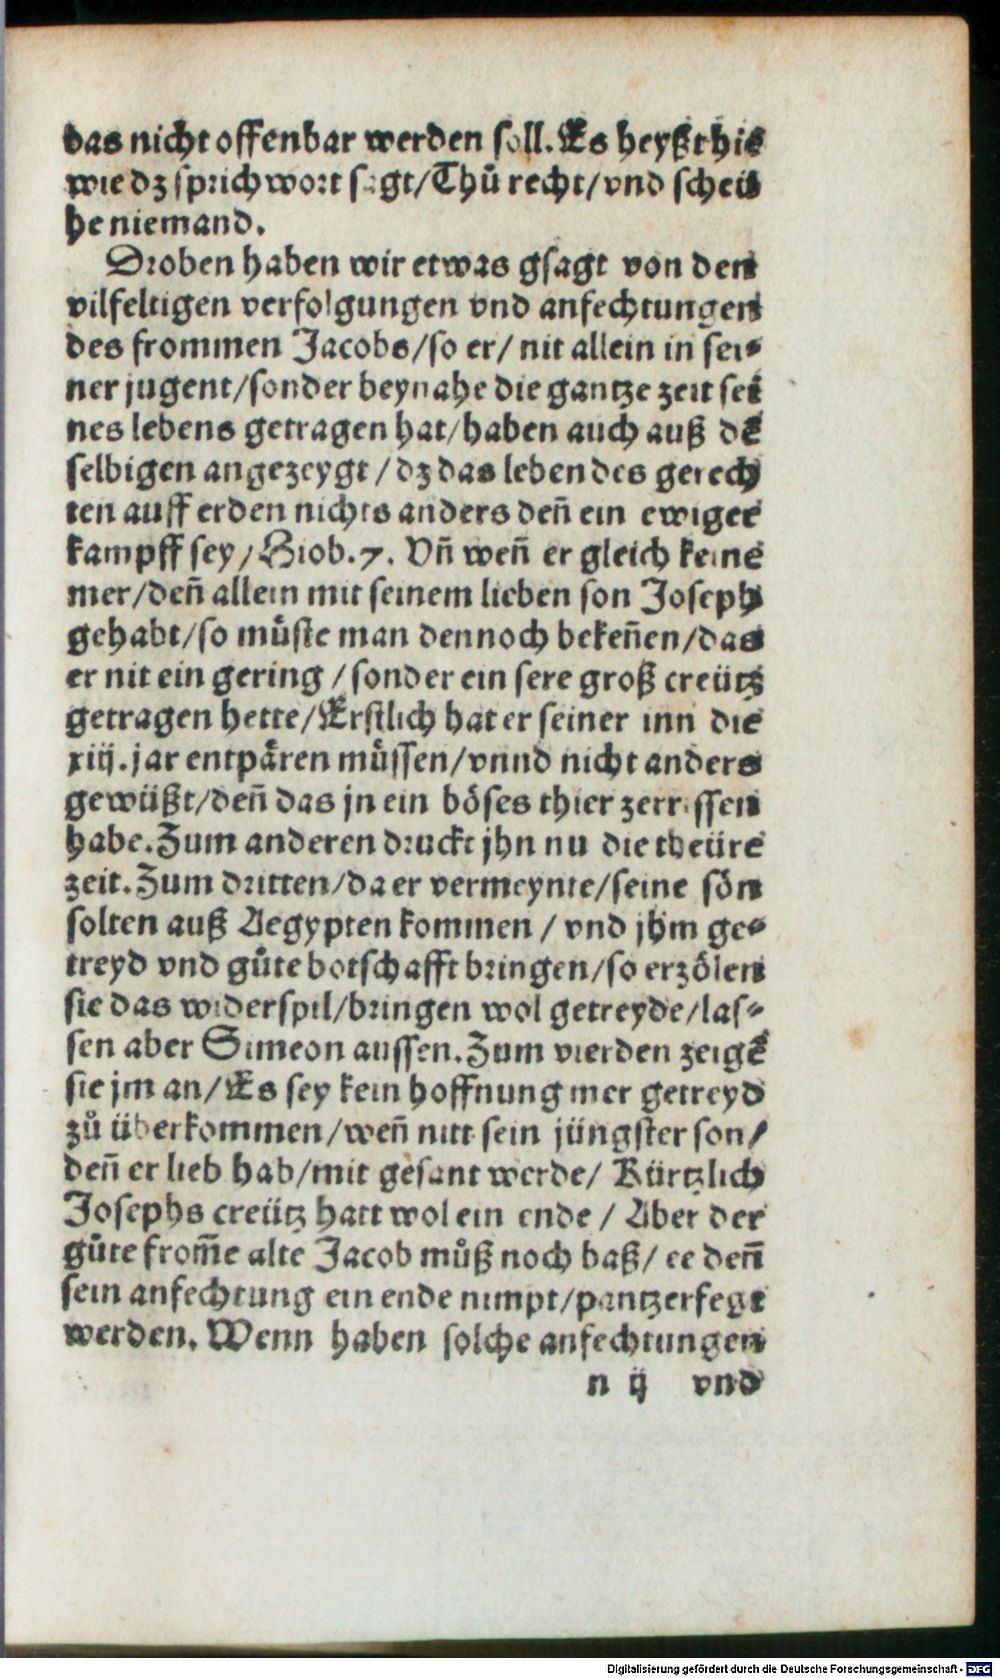 das nicht offenbar werden soll. Es heyßt hie
wie dz sprichwort sagt/Thů recht/vnd scheü
he niemand.
Droben haben wir etwas gsagt von den
vilfeltigen verfolgungen vnd anfechtungen
des frommen Jacobs/so er/ nit allein in sei⸗
ner jugent/sonder beynahe die gantze zeit sei
nes lebens getragen hat/haben auch auß dē
selbigen angezeygt/dz das leben des gerech
ten auff erden nichts anders deñ ein ewiger
kampff sey/Hiob.7. Vñ weñ er gleich keine
mer/deñ allein mit seinem lieben son Joseph
gehabt/so müste man dennoch bekeñen/das
er nit ein gering/sonder ein sere groß creütz
getragen hette/Erstlich hat er seiner inn die
xiij.jar entpären müssen/vnnd nicht anders
gewüßt/deñ das jn ein böses thier zerrissen
habe. Zum anderen druckt jhn nu die theüre
zeit. Zum dritten/da er vermeynte/seine sön
solten auß Aegypten kommen/vnd jhm ge⸗
treyd vnd gůte botschafft bringen/so erzölen
sie das widerspil/bringen wol getreyde/las⸗
sen aber Simeon aussen. Zum vierden zeigē
sie jm an/Es sey kein hoffnung mer getreyd
zů überkommen/weñ nitt sein jüngster son/
deñ er lieb hab/mit gesant werde/ Kürtzlich
Josephs creütz hatt wol ein ende/ Aber der
gůte from̃e alte Jacob můß noch baß/ ee deñ
sein anfechtung ein ende nimpt/pantzerfegt
werden. Wenn haben solche anfechtungen
n ij vnd
Digitalisierung gefördert durch die Deutsche Forschungsgemeinschaft - DFG